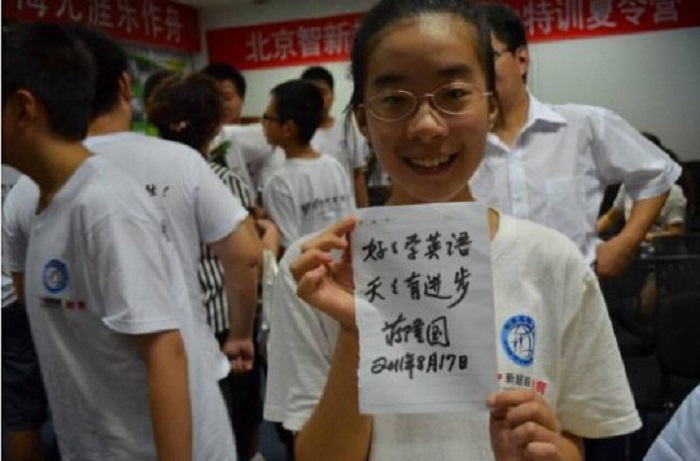 海无涯乐作舟
北京智新
特训夏令营
好々学英语
天々有进步
蒋隆国
2011年8月17日